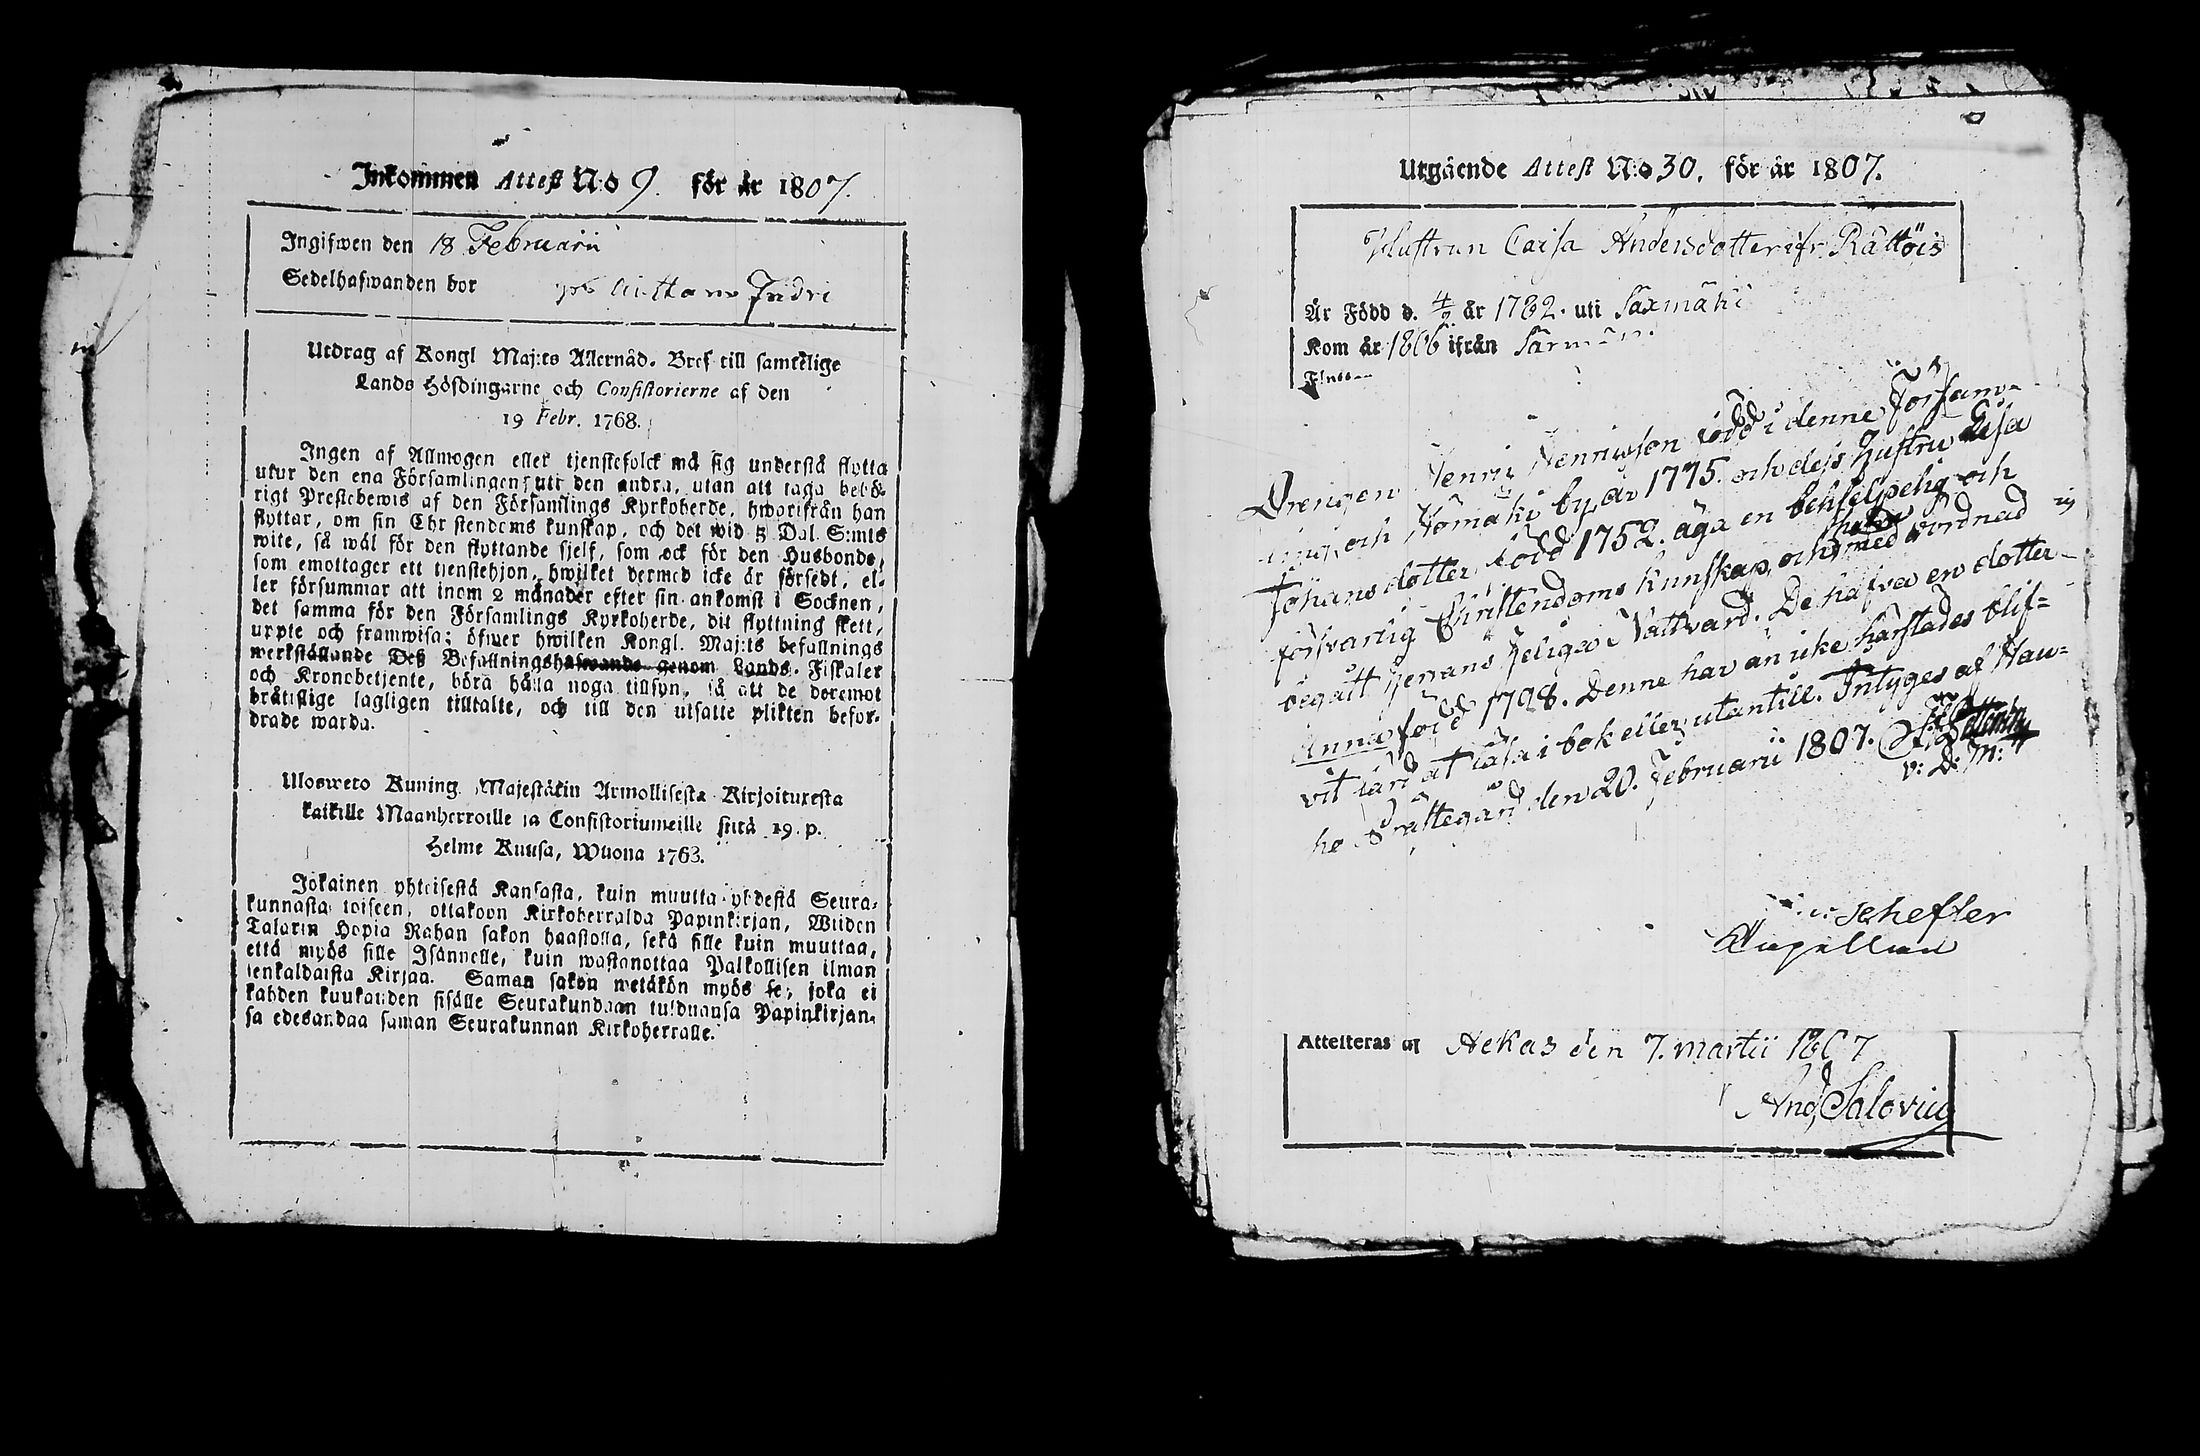 Inkommen Attest No 9. för år 1807.
Ingifwen den 18 Februarii
Sedelhafwanden bor på
Utdrag af Kongl Maj:ts Allernåd. Bref till samtelige
Lands Höfdingarne och Consistorierne af den
19 Febr. 1768.
Ingen af Allmogen eller tjenstefolck må sig understå flytta
utur den ena Församlingen uti den andra, utan att taga behö-
rigt Prestebewis af den Församlings Kyrkoherde, hworifrån han
flyttar, om sin Chrstendoms kunskap, och det wid 5 Dal. S:mts
wite, så wäl för den flyttande sjelf, som ock för den Husbonde,
som emottager ett tjenstehjon, hwilket dermed icke är försedt, el-
ler försummar att inom 2 månader efter sin ankomst i Socknen,
det samma för den Församlings Kyrkoherde, dit flyttning skett,
uppte och framwisa; öfwer hwilken Kongl. Maj:ts befallnings
werkställande Deß Befallningshafwande genom Lands-Fiskaler
och Kronobetjente, böra hålla noga tillsyn, så att de deremot
bråttslige lagligen tilltalte, och till den utsatte plikten befor-
drade warda.
Ulosweto Kuning. Majestätin Armollisesta Kirjoituxesta
kaikille Maanherroille ja Consistoriumeille siitä 19. p.
Helme Kuusa, Wuona 1763.
Jokainen yhteisestä Kansasta, kuin muutta yhdestä Seura-
kunnasta toiseen, ottakoon Kirkoherralda Papinkirjan, Wiiden
Talarin Hopia Rahan sakon haastolla, sekä sille kuin muuttaa,
että myös sille Isännelle, kuin wastanottaa Palkollisen ilman
senkaldaista Kirjaa. Saman sakon wetäkön myös se, joka ei
kahden kuukauden sisälle Seurakundaan tulduansa Papinkirjan-
sa edesandaa saman Seurakunnan Kirkoherralle.
Utgående Attest No 30. för år 1807.
Hustrun Caisa Andersdotter ifr. Rättöis
Är Född d. 4/2 år 1782. uti Säxmäki
Kom år 1806 ifrån
Drengen Henric Henricsson född i denne Försam-
ling och by år 1775. och dess Hustru Lisa
Johansdotter född 1752. äga en behjelpelig och
försvarlig Christendoms kunskap, och med vördnad
begått Herrans Heliga Nattvard. De hafva en dotter
Anna född 1798. Denne har än icke härstädes blif-
vit lärd at läsa i bok eller utantill. Intyges af Hau-
ho Prästegård den 20. Februarii 1807.
v: D: M:
Schefler
Capellan
Attesteras af Aekas den 7. Martii 1807
And Salovius